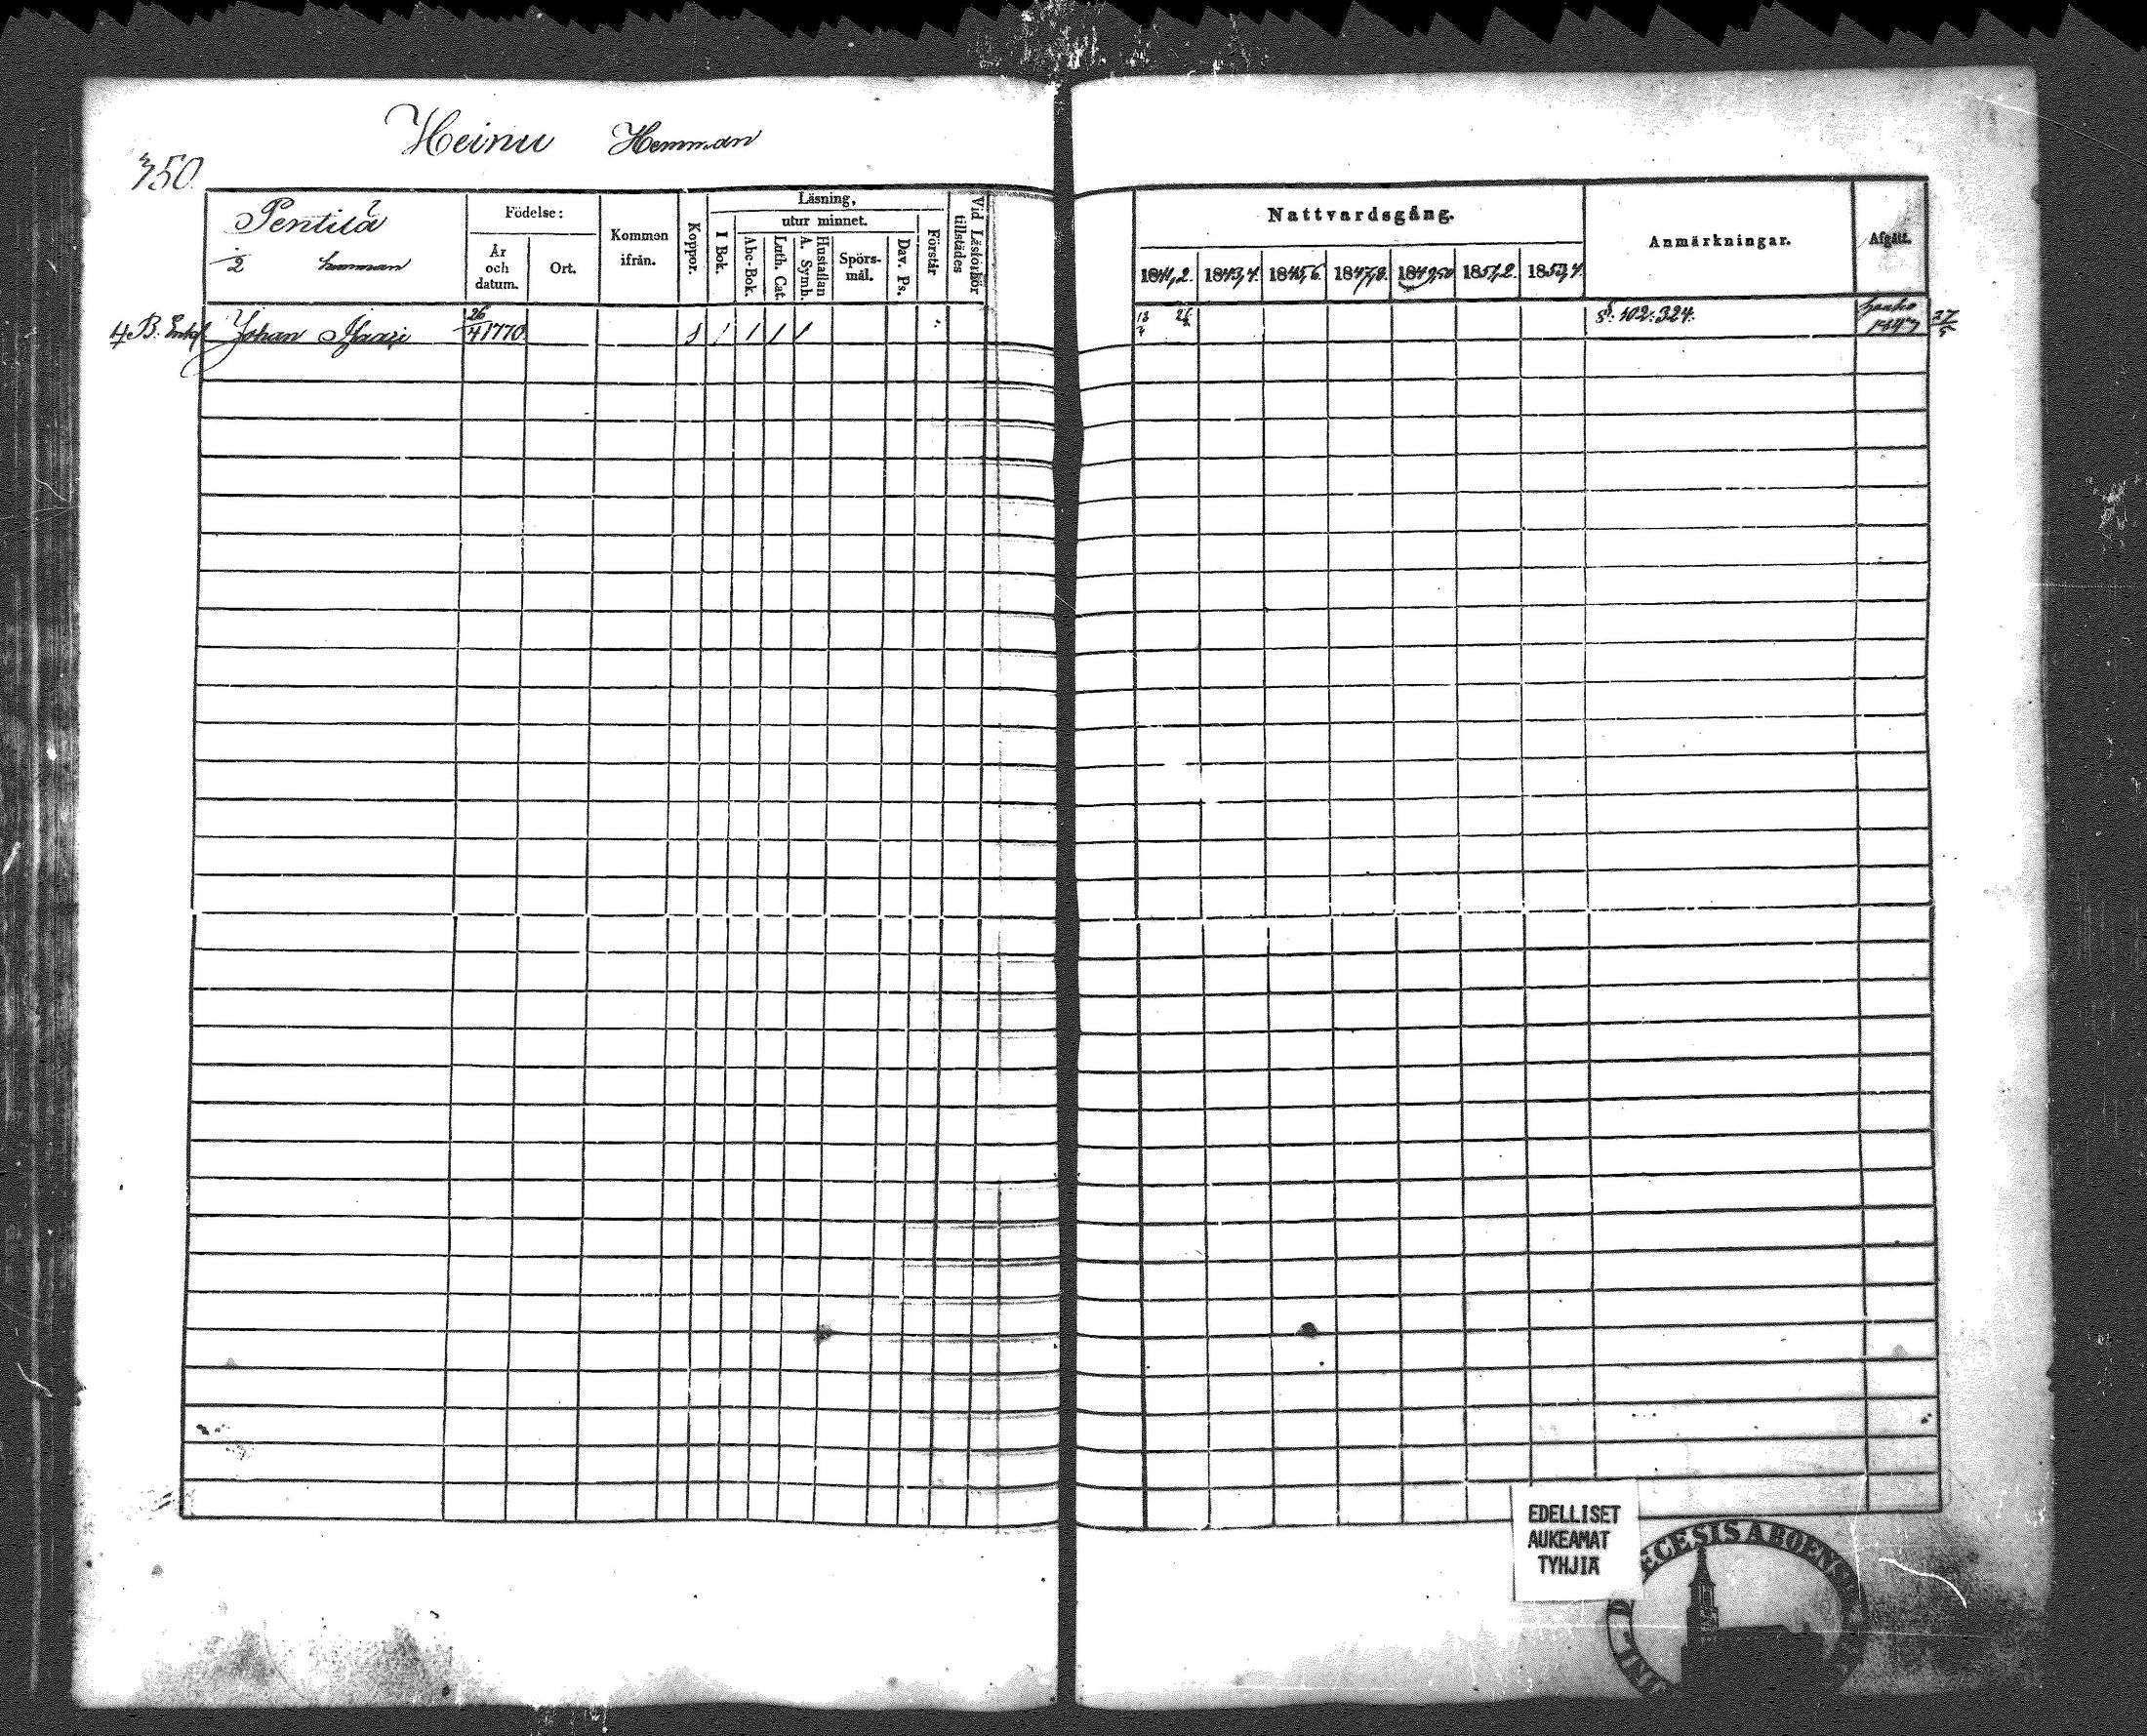 Heinu Hemman
350.
Pentilä
1/2 hemman
Födelse:
År och datum.
Ort.
Kommen ifrån.
Koppor.
Läsning,
utur minnet.
I Bok.
Abc-Bok.
Luth. Cat.
Hustaflan A. Symb.
Spörs-mål.
Dav. Ps.
Förstår
Vid Läsförhör tillstädes
Nattvardsgång.
1841,2. 1843,4. 1845,6. 1847,8. 1849,50 1851,2. 1853,4.
Anmärkningar.
Afgått.
B. Enkl. Johan 26/4 1770 102: 324. 1847 27/5
EDELLISET
AUKEAMAT
TYHJIÄ